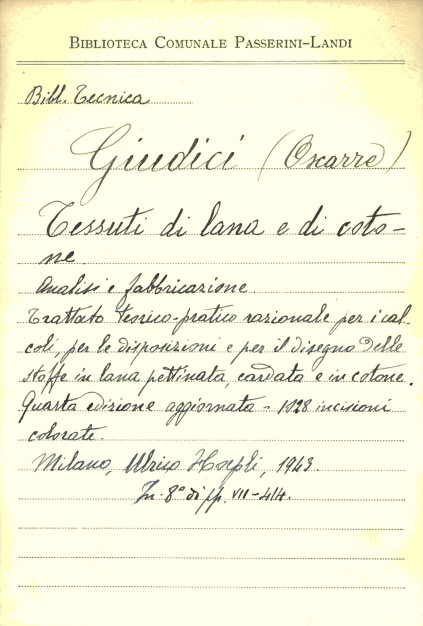 BIBLIOTECA COMUNALE PASSERINI-LANDI
Bibl. Tecnica
Giudici (Oscarre)
Tessuti di lana e di coto-
ne.
Analisi e fabbricazione.
Trattato teorico-pratico razionale per i cal-
coli, per le disposizioni e per il disegno delle
stoffe in lana pettinata, cardata e in cotone.
Quarta edizione aggiornata - 1028 incisioni
colorate.
Milano, Ulrico Hoepli, 1943
In-8° di pp. VII-414.